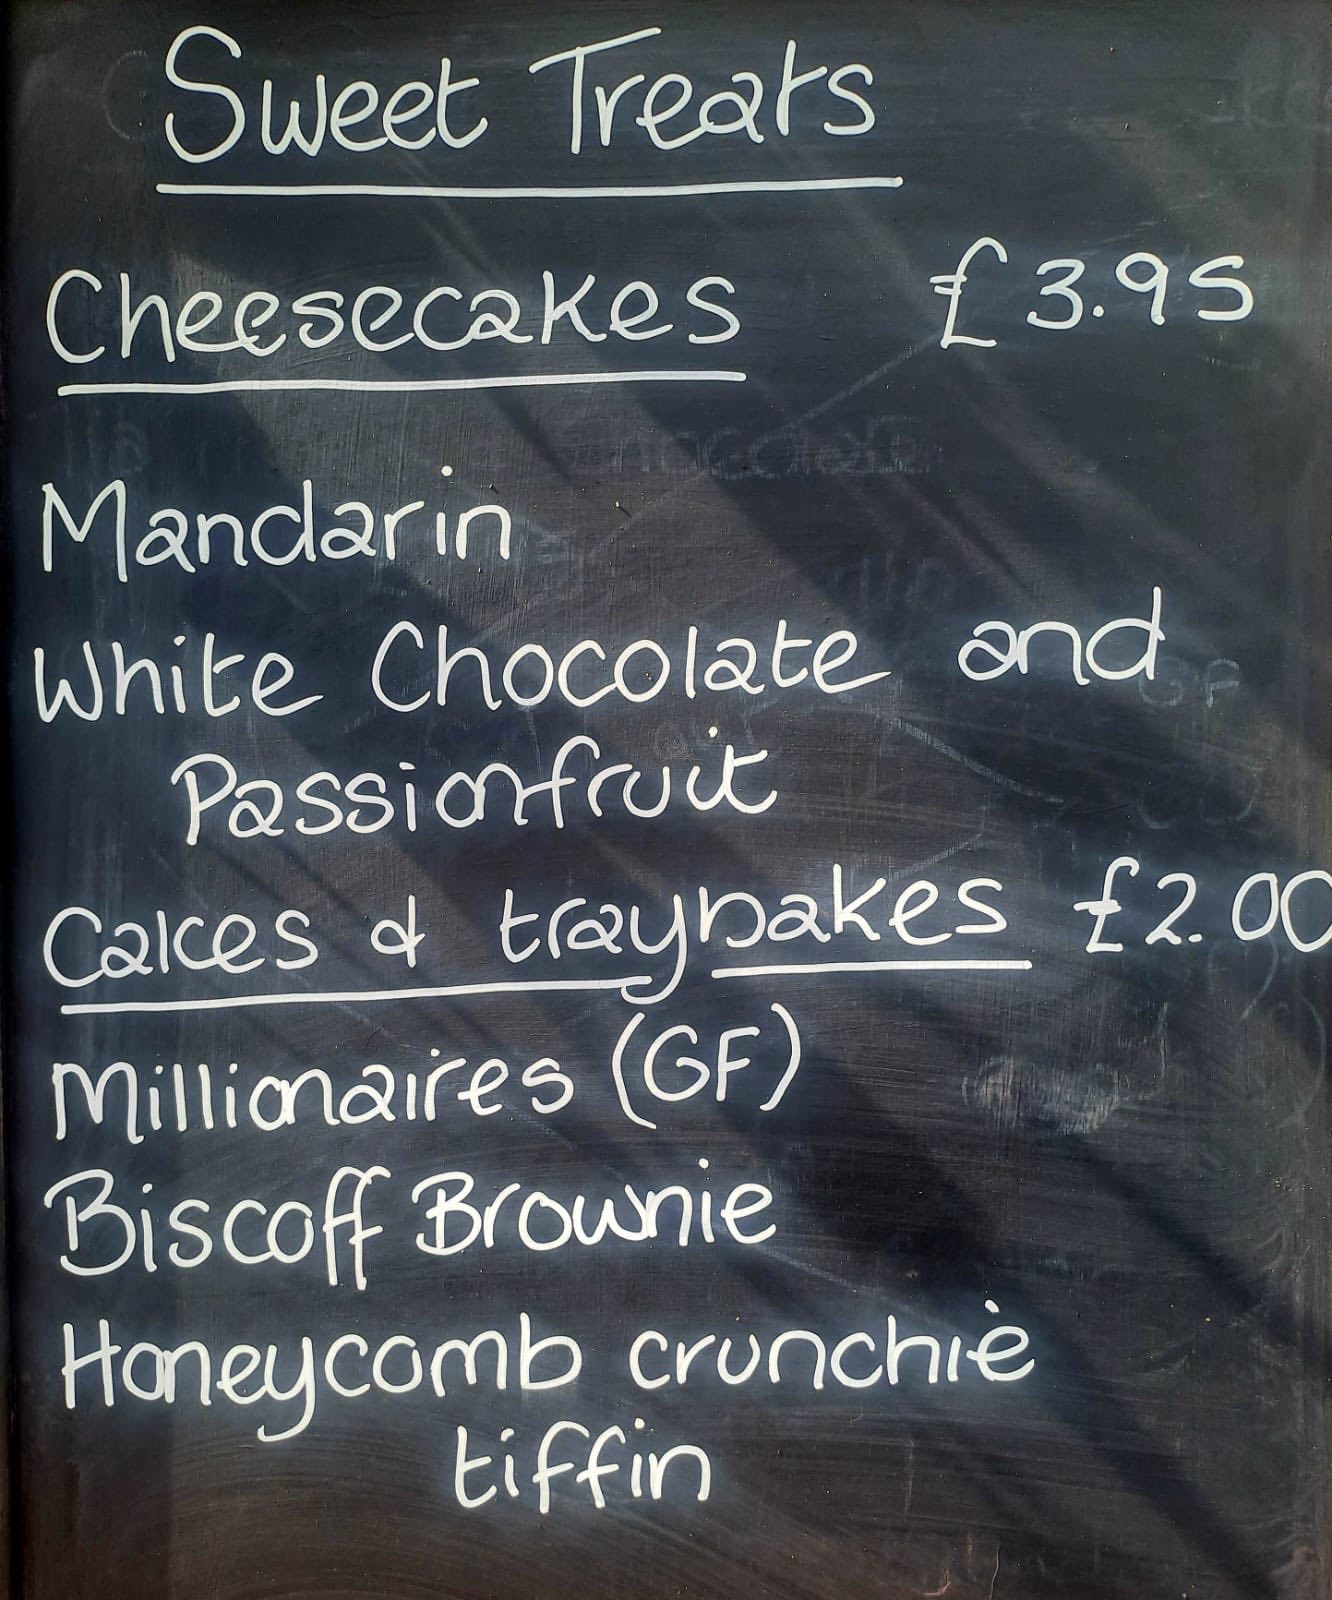 Sweet Treats
Cheesecakes £3.95
Mandarin
White Chocolate and
Passionfruit
Cakes & traybakes £2.00
Millionaires (GF)
Biscoff Brownie
Honeycomb crunchie
tiffin